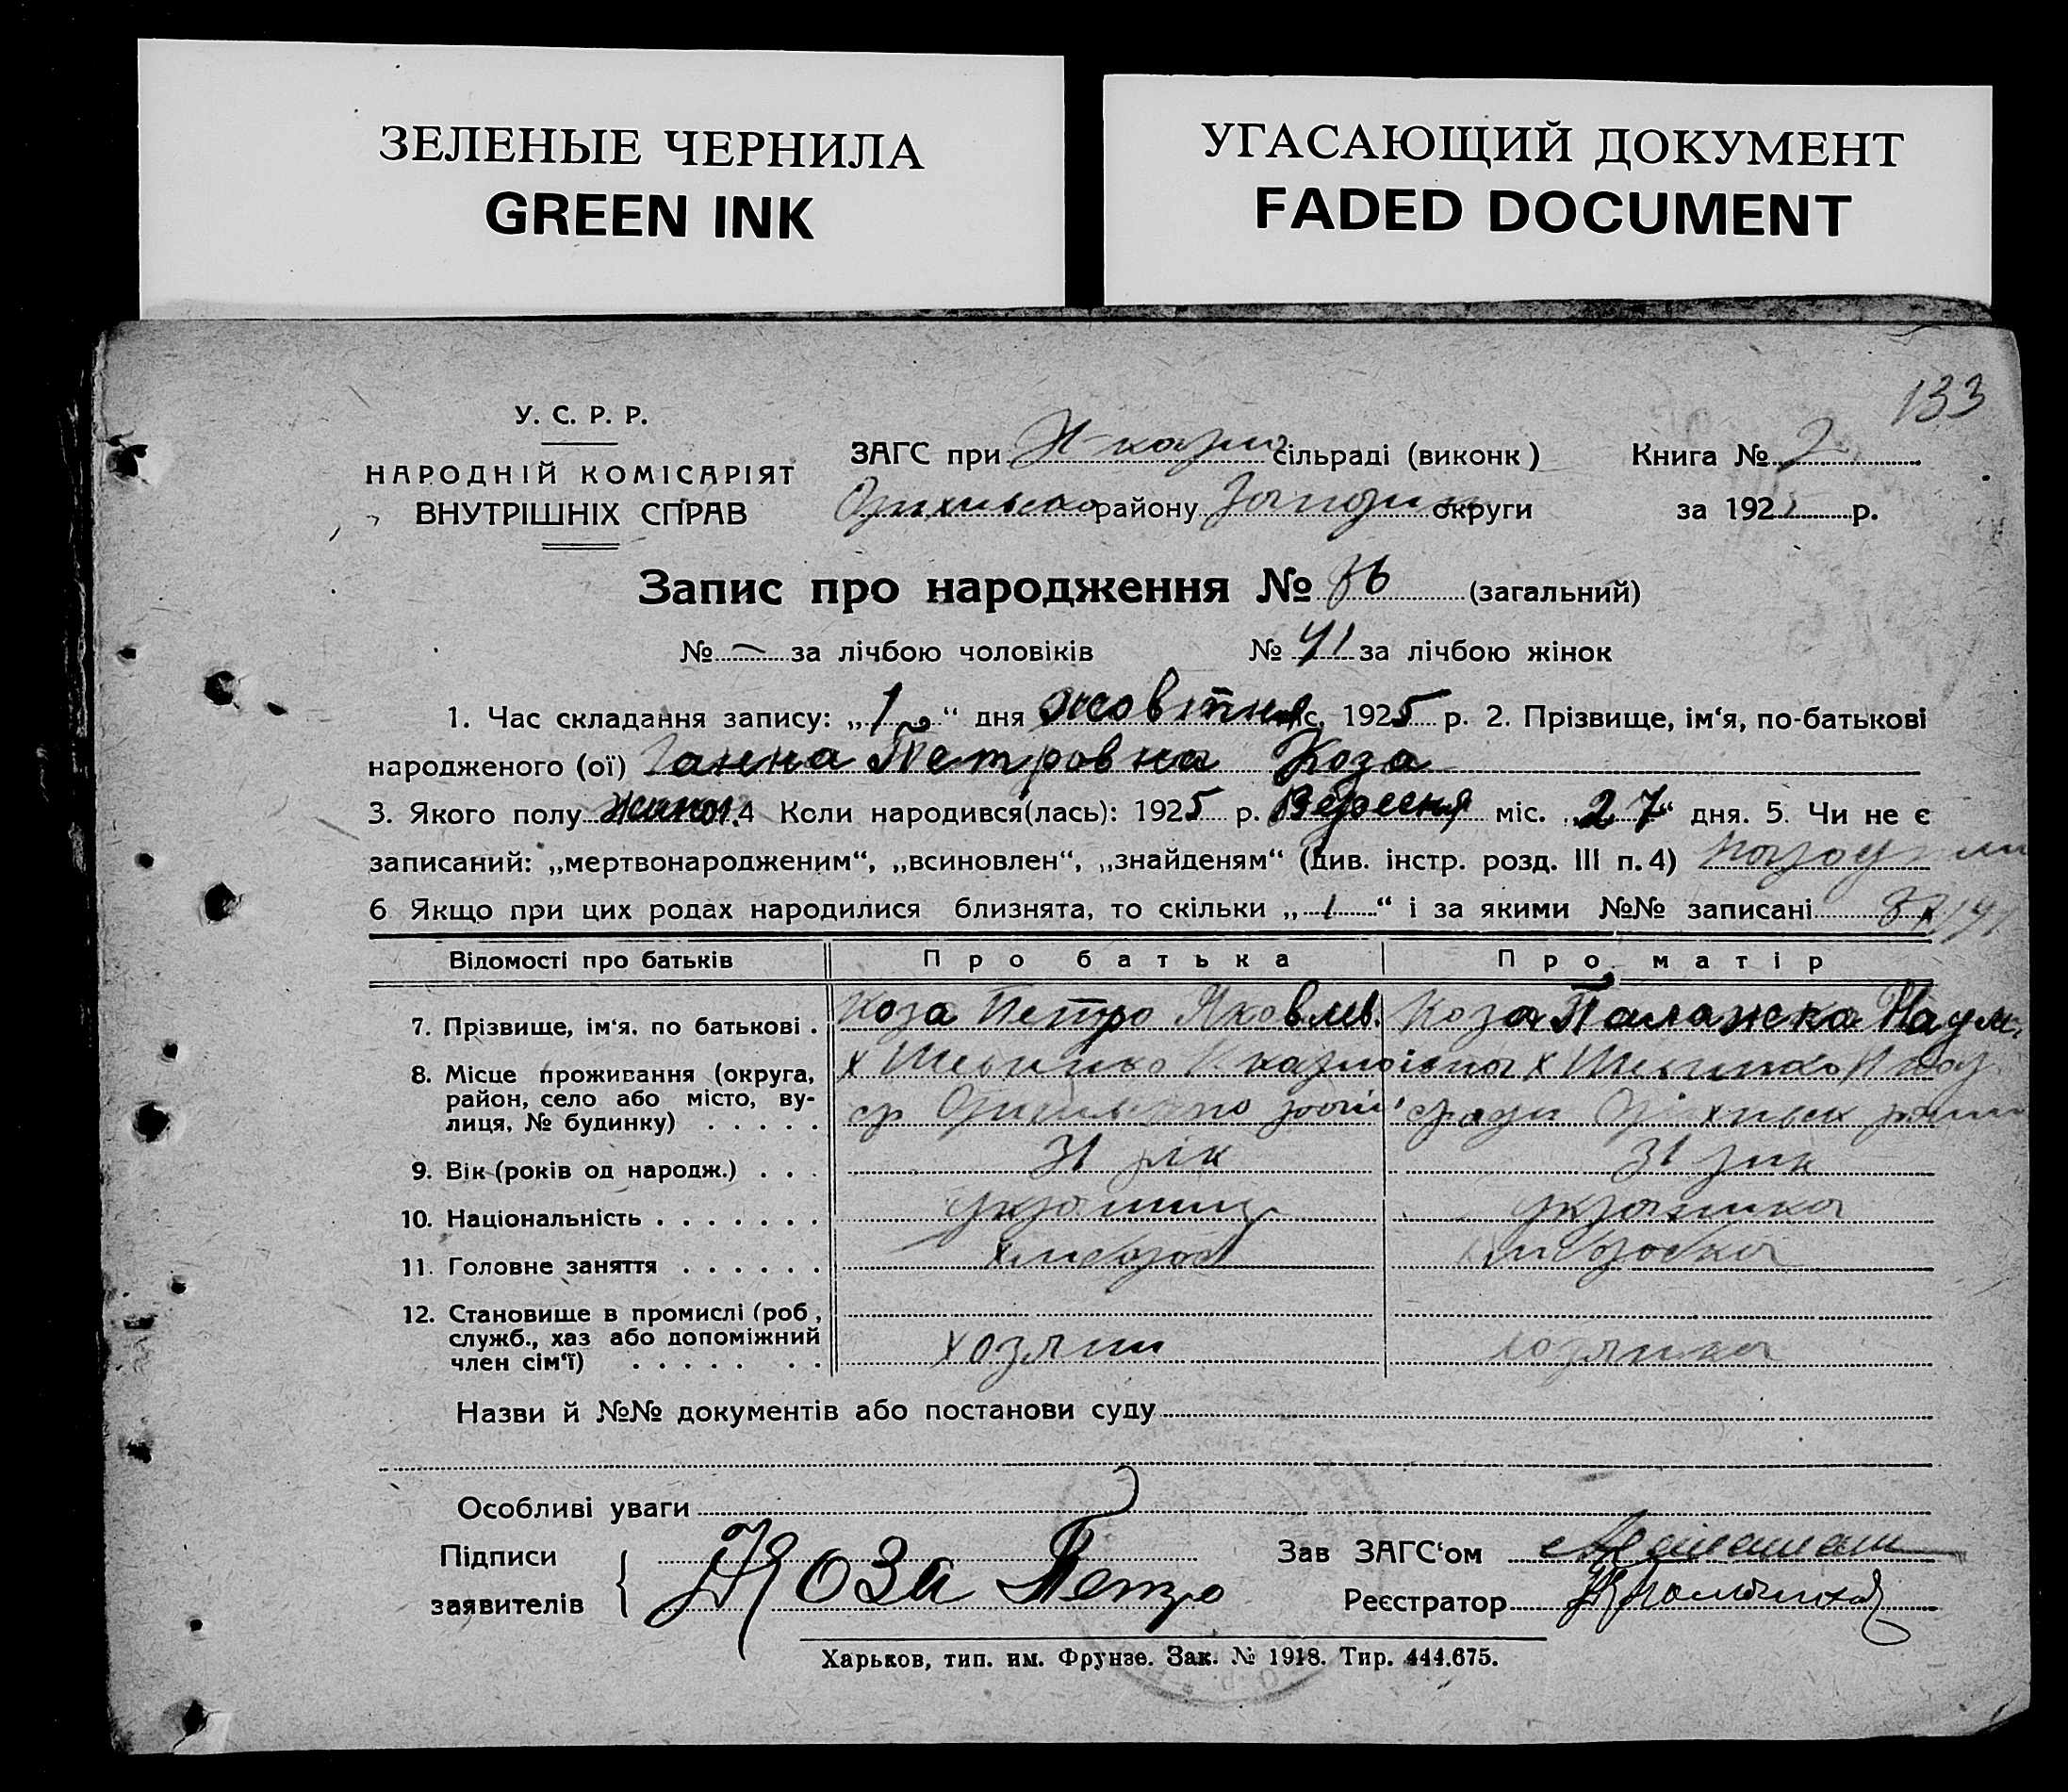 ЗЕЛЕНЫЕ ЧЕРНИЛА
GREEN INK
УГАСАЮЩИЙ ДОКУМЕНТ
FADED DOCUMENT
133
У. С. Р. Р.
НАРОДНІЙ КОМІСАРІЯТ
ВНУТРІШНІХ СПРАВ
ЗАГС при сільраді (виконк) Книга № 2
району округи за 192 р.
Запис про народження № (загальний)
№ — за лічбою чоловіків № 41 за лічбою жінок
1. Час складання запису: „1“ дня жовтня с. 1925 р. 2. Прізвище, ім‘я, по-батькові
народженого (ої) Ганна Петровна Коза
3. Якого полу жіноч. 4 Коли народився(лась): 1925 р. Вересня міс. „27“ дня. 5. Чи не є
записаний: „мертвонародженим“, „всиновлен“, „знайденям“ (див. інстр. розд. III п. 4)
6 Якщо при цих родах народилися близнята, то скільки „1“ і за якими №№ записані
Відомості про батьків Про батька Про матір
7. Прізвище, ім‘я. по батькові . Коза Петро Яковлев. Коза Палажска Наум.
8. Місце проживання (округа, район, село або місто, вулиця, № будинку) . . . . .
9. Вік (років од народж.) . . . 31 рік 31 рік
10. Національність . . . . . . . українец українка
11. Головне заняття . . . . . . хлібороб хліборобка
12. Становище в промислі (роб, служб., хаз або допоміжний член сім‘ї) . . . . . . . хозяин хозяика
Назви й №№ документів або постанови суду
Особливі уваги
Підписи заявителів Коза Петро
Зав ЗАГС‘ом
Реєстратор
Харьков, тип. им. Фрунзе. Зак. № 1918. Тир. 444.675.